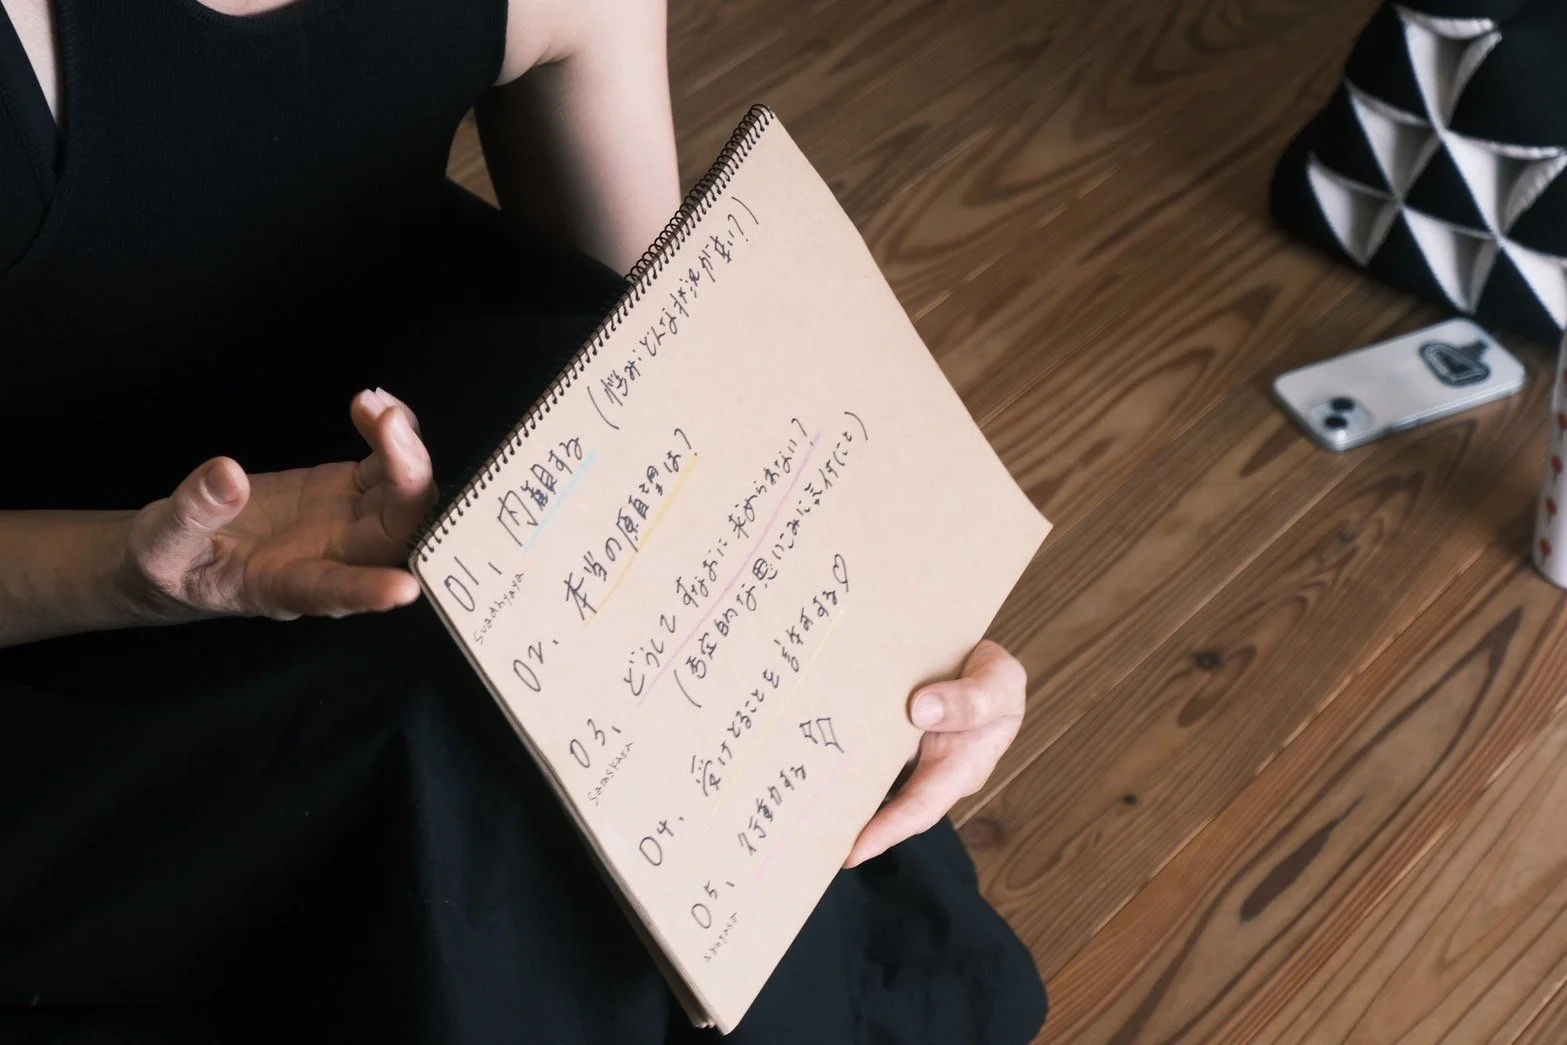 01. 内観する (悩み・どんなすがれがある?)
Svadhyaya
02. 本当の原因・望は?
03. どうして すなおに 求められない?
Samskara
(否定的な思いこみに気付くこと)
04. 受けとることを 許可する♡
05. 行動する
abhyasa